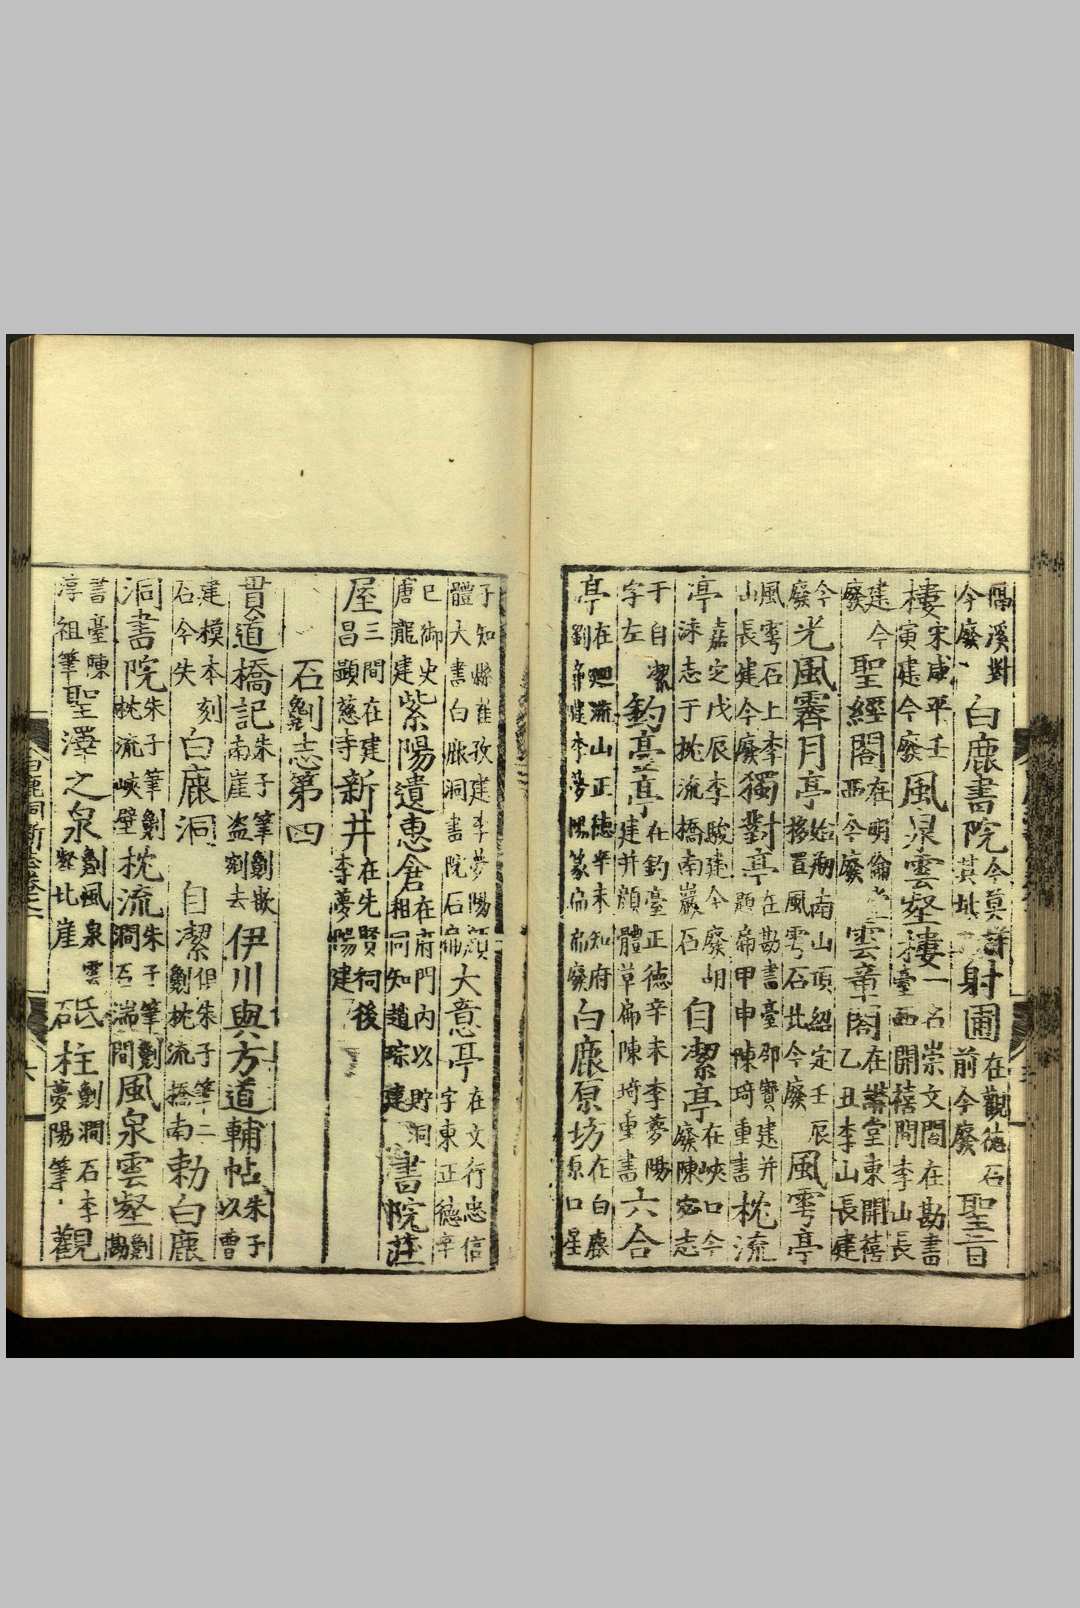 隔溪對今廢 白鹿書院今莫詳其址 射圃在觀德石前今廢 聖旨
樓宋咸平壬寅建今廢 風泉雲壑樓一名崇文閣在勘書臺西開禧間李山長
建今廢 聖經閣在明倫堂西今廢 雲章閣在講堂東開禧乙丑李山長建
今廢 光風霽月亭始剏南山頂紹定壬辰移置風雩石北今廢 風雩亭
風雩石上李山長建今廢 獨對亭在勘書臺邵寶建并題扁甲申陳琦重書 枕流
亭嘉定戊辰李駿建今廢胡洡志于枕流橋南巖石 自潔亭在峽口今廢陳宓志
于自潔字左 釣臺亭在釣臺正德辛未李夢陽建并顏體草扁陳琦重書 六合
亭在廻流山正德辛未知府劉章建李夢陽篆扁扁廢 白鹿原坊在白鹿原口星
子知縣崔孜建李夢陽顏體大書白鹿洞書院石扁 大意亭在文行忠信字東正德辛
巳御史唐龍建 紫陽遺惠倉在府門內以貯洞租同知趙琮建 書院莊
屋三間在建昌顯慈寺 新井在先賢祠後李夢陽建
石劖志第四
貫道橋記朱子筆劖嵌南崖盜剜去 伊川與方道輔帖朱子以曹
建模本刻石今失 白鹿洞 自潔俱朱子筆二劖枕流橋南 勅白鹿
洞書院朱子筆劖枕流峽壁 枕流朱子筆劖澗石湍間 風泉雲壑劖勘
書臺陳淳祖筆 聖澤之泉劖風泉雲壑北崖 砥柱劖澗石李夢陽筆 觀
白鹿洞新志卷之二
六